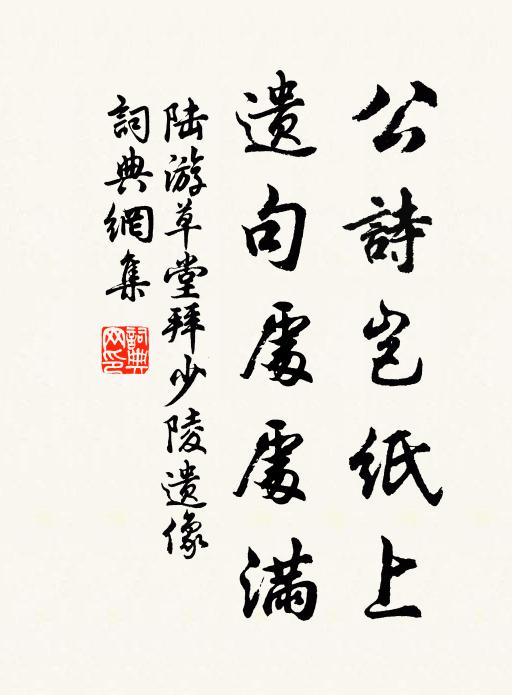 公詩豈紙上
遺句處處滿
陆游草堂拜少陵遺像
詞典網集
詞典
网印